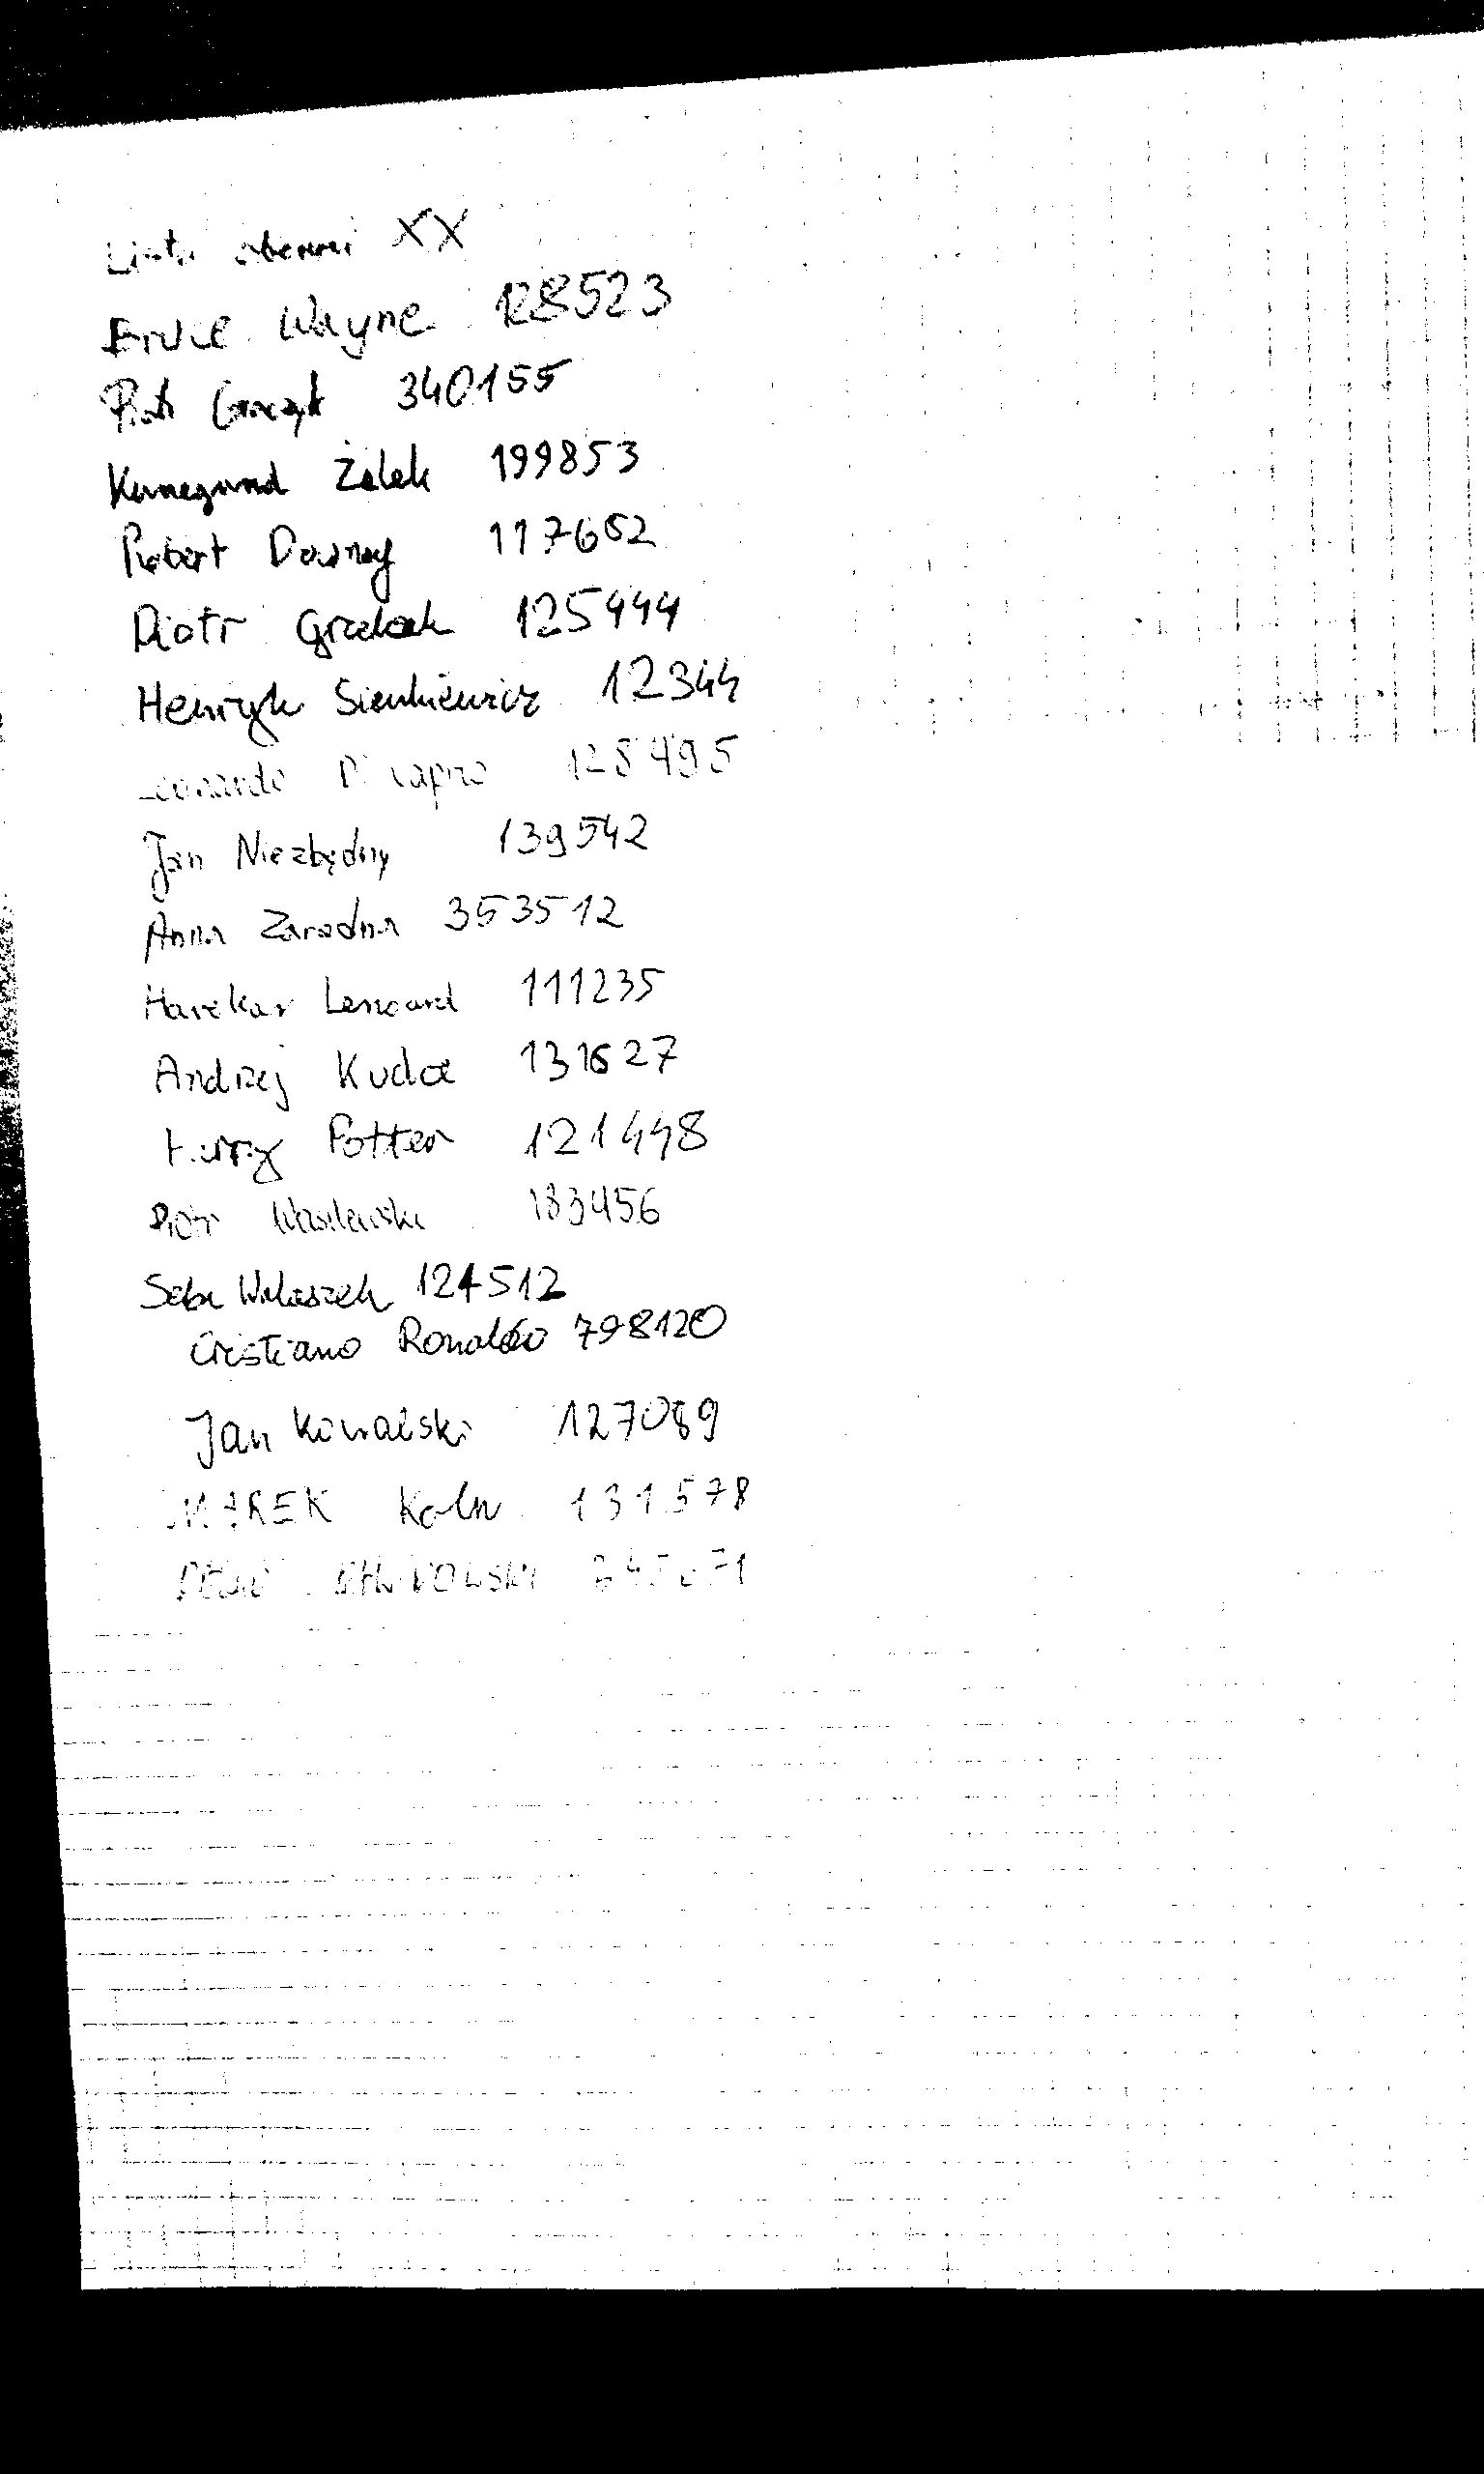 Lista obecności XX
Bruce Wayne 128523
Piotr 340155
Kunegund Żelek 199853
Robert Downey 117652
Piotr 125444
Henryk Sienkiewicz 12344
Leonardo Di Caprio 128495
Jan Niezbędny 139542
Anna Zaradna 353512
Lennard 111235
Andrzej Kudła 131627
Harry Potter 121448
Piotr Wasilewski 183456
Seba Walaszek 124512
Cristiano Ronaldo 798120
Jan Kowalski 127089
MAREK Kaln 131578